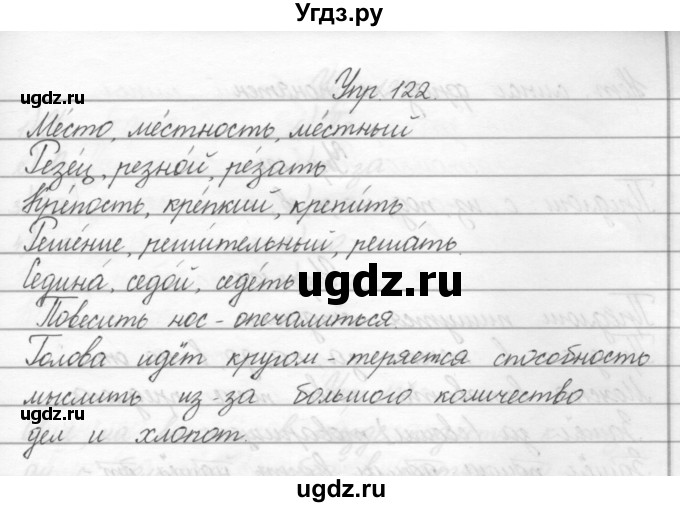 Угдз.ру
Упр. 122
ugdz.ru
Ме́сто, ме́стность, ме́стный
ugdz.ru
Резе́ц, резно́й, ре́зать
Кре́пость, кре́пкий, крепи́ть
Реше́ние, реши́тельный, реша́ть.
Седина́, седо́й, седе́ть
ugdz.ru
Повесить нос - опечалиться
Голова идёт кругом - теряется способность
мыслить из-за большого количество
ugdz.ru
ugdz.ru
дел и хлопот.
ugdz.ru